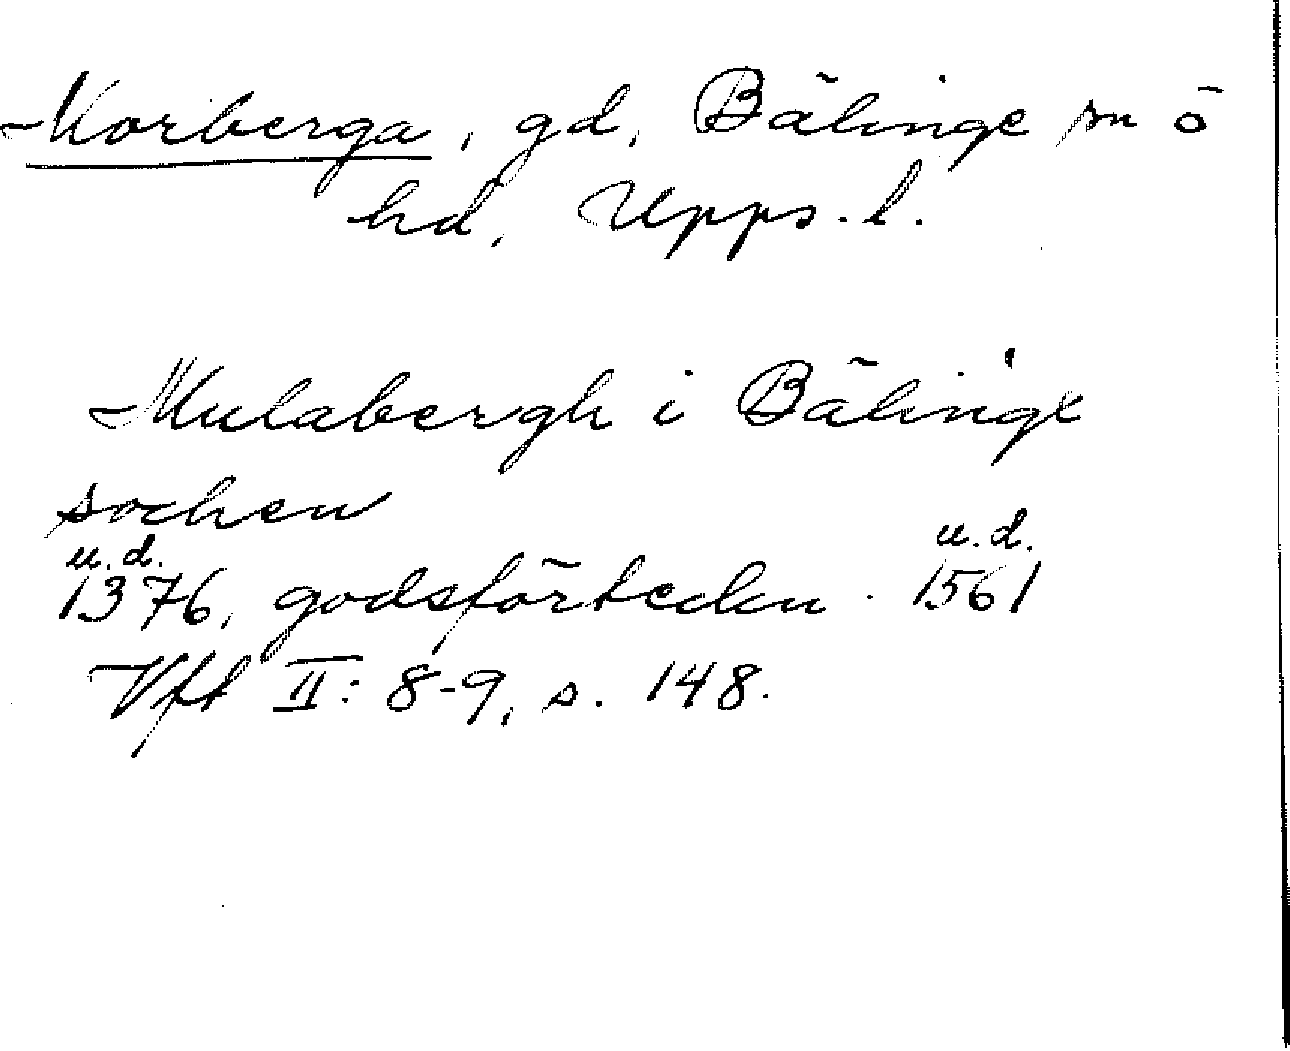 Morberga, gd, Bälinge sn o
hd, Upps. l.
Mulabergh i Bälinge
sochen
u.d. u.d.
1376, godsförteckn. 1561
Vft II: 8-9, s. 148.